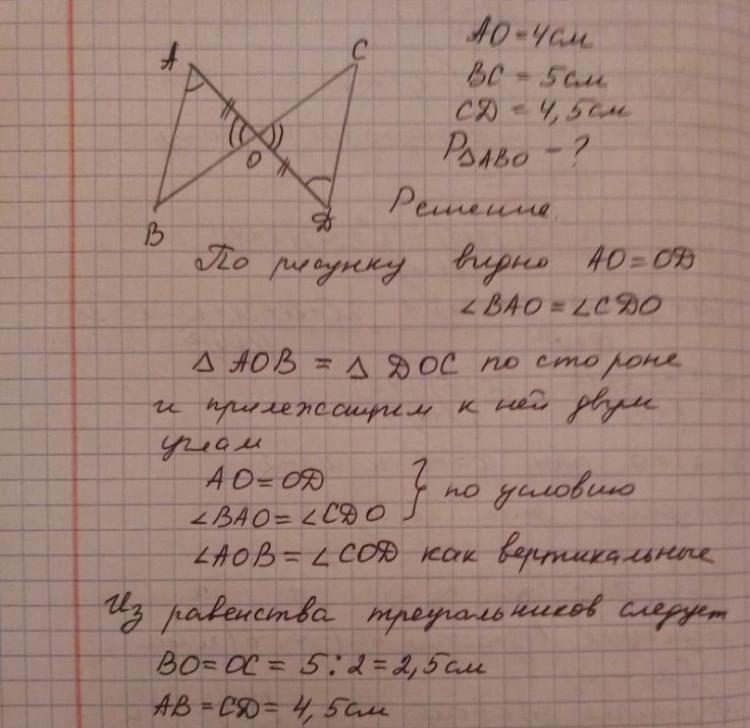 A
C
O
B
D
AO = 4 см
BC = 5 см
CD = 4,5 см
P△ABO - ?
Решение.
По рисунку видно AO = OD
∠BAO = ∠CDO
△ AOB = △ DOC по стороне
и прилежащим к ней двум
углам
AO = OD
∠BAO = ∠CDO } по условию
∠AOB = ∠COD как вертикальные
Из равенства треугольников следует
BO = OC = 5 : 2 = 2,5 см
AB = CD = 4,5 см